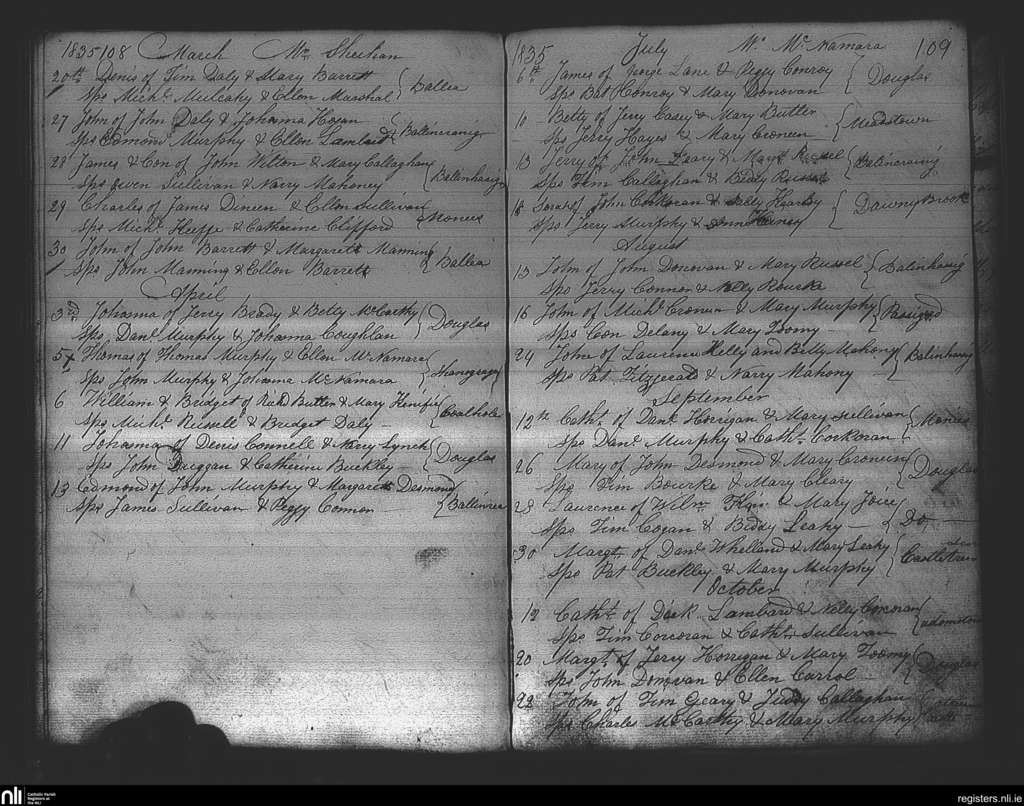 1835 108 March Mr Sheehan
20th Denis of Tim Daly & Mary Barrett
Sps Michl Mulcahy & Ellen Marshal { Ballea
27 John of John Daly & Johanna Hogan
Sps Edmond Murphy & Ellen Lambard { Balincranig
28 James & Con of John Wilton & Mary Callaghan
Sps Owen Sullivan & Narry Mahoney { Balinhasig
29 Charles of James Dineen & Ellen Sullivan
Sps Michl Keeffe & Catherine Clifford { Monees
30 John of John Barrett & Margarett Manning
Sps John Manning & Ellen Barrett { Ballea
April
3rd Johanna of Jerry Brady & Betty McCarthy
Sps Danl Murphy & Johanna Coughlan { Douglas
5 Thomas of Thomas Murphy & Ellen McNamara
Sps John Murphy & Johanna McNamara {
6 William & Bridget of Richd Butler & Mary Kenific
Sps Michl Russell & Bridget Daly { Coalhole
11 Johanna of Denis Connell & Nory Lynch
Sps John Duggan & Catherine Buckley { Douglas
13 Edmond of John Murphy & Margarett Desmond
Sps James Sullivan & Peggy Connor { Ballinrea
1835 July Wm McNamara 109
6th James of George Lane & Peggy Conroy
Sps Pat Conroy & Mary Donovan { Douglas
10 Betty of Jerry Casey & Mary Butler
Sps Jerry Hayes & Mary Croneen { Meadstown
13 Jerry of John Leary & Mary Russel
Sps Tim Callaghan & Biddy Russel { Balincrainig
18 Sarah of John Corkoran & Nelly Heardy
Sps Jerry Murphy & Anne { Dawny Brook
August
13 John of John Donovan & Mary Russel
Sps Jerry Connor & Nelly Rourke { Balinhasig
16 John of Michl Cronen & Mary Murphy
Sps Con Delany & Mary Toomy { Passage
24 John of Laurence Kelly and Betty Mahony
Sps Pat Fitzgerald & Narry Mahony { Balinhasig
September
12th Catht of Danl Horrigan & Mary Sullivan
Sps Danl Murphy & Catht Corkoran { Monees
26 Mary of John Desmond & Mary Croneen
Sps Tim Bourke & Mary Cleary { Douglas
28 Laurence of Wilm & Mary Joice
Sps Tim Cogan & Biddy Leahy { Do
30 Margt of Danl Whelland & Mary Leahy
Sps Pat Buckley & Mary Murphy {
October
12 Catht of Dick Lambard & Nelly Corcoran
Sps Tim Corcoran & Catht Sullivan {
20 Margt of Jerry Horrigan & Mary Toomy
Sps John Donovan & Ellen Carrol { Douglas
28 John of Tim Geary & Juddy Callaghan
Sps Charles McCarthy & Mary Murphy {
nli Catholic Parish Registers at the NLI
registers.nli.ie